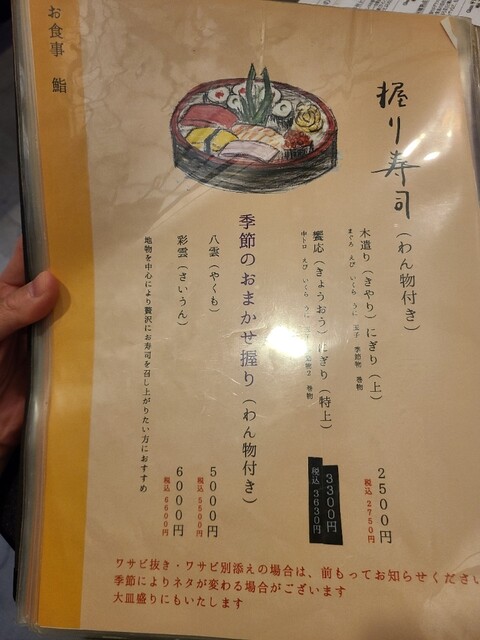 お食事 鮨
握り寿司
(わん物付き)
木遣り(きやり)にぎり(上)
まぐろ えび いくら うに 玉子 季節物 巻物
2500円
税込 2750円
饗応(きょうおう)にぎり(特上)
中トロ えび いくら うに
物2 巻物
3300円
税込 3630円
季節のおまかせ握り(わん物付き)
八雲(やくも)
5000円
税込 5500円
彩雲(さいうん)
6000円
税込 6600円
地物を中心により贅沢にお寿司を召し上がりたい方におすすめ
ワサビ抜き・ワサビ別添えの場合は、前もってお知らせくださ
季節によりネタが変わる場合がございます
大皿盛りにもいたします